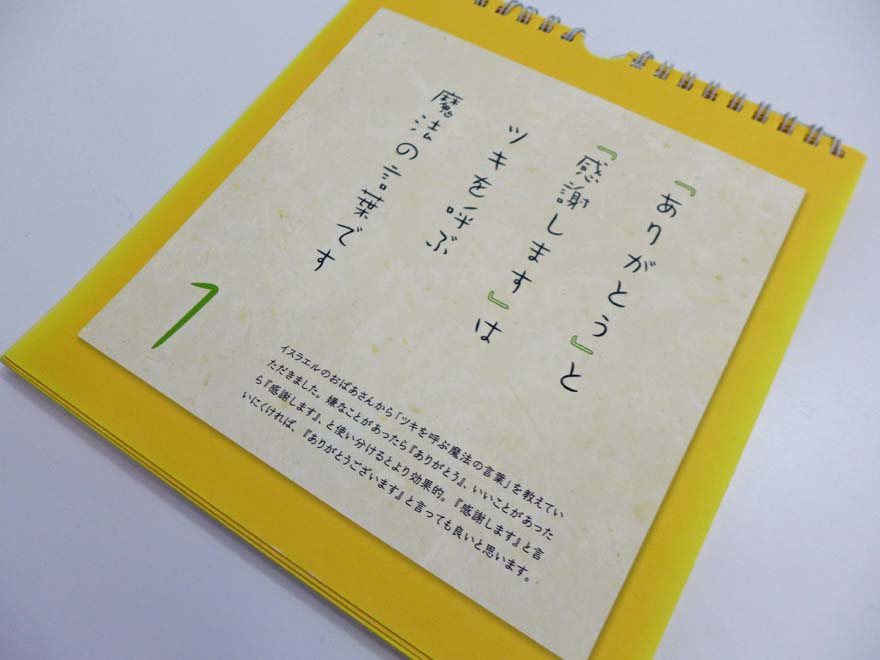 『ありがとう』と
『感謝します』は
ツキを呼ぶ
魔法の言葉です
1
イスラエルのおばあさんから「ツキを呼ぶ魔法の言葉」を教えてい
ただきました。嫌なことがあったら『ありがとう』、いいことがあった
ら『感謝します』、と使い分けるとより効果的。『感謝します』と言
いにくければ、『ありがとうございます』と言っても良いと思います。